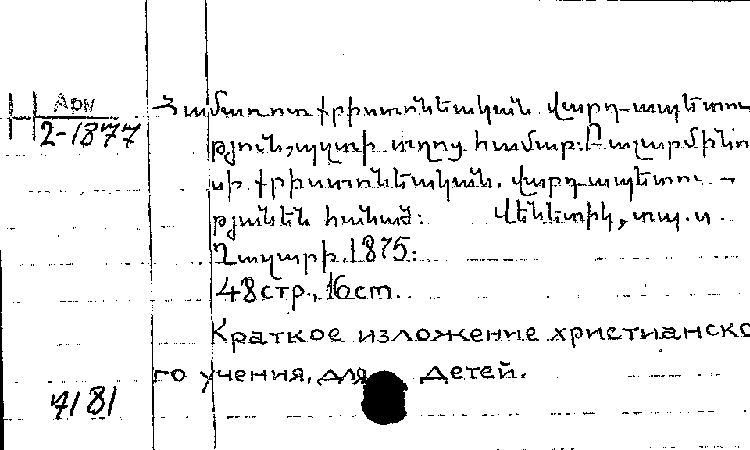 Арм
2-1877
Համառօտ քրիստոնեական վարդապետու
թյուն, պզտի տղոց համար: Բ
սի քրիստոնեական վարդապետու-
թյանեն հանած: Վենետիկ, տպ. ս.
Ղազարի 1875.
48 стр., 16 cm.
Краткое изложение христианско
го учения, для детей.
7181